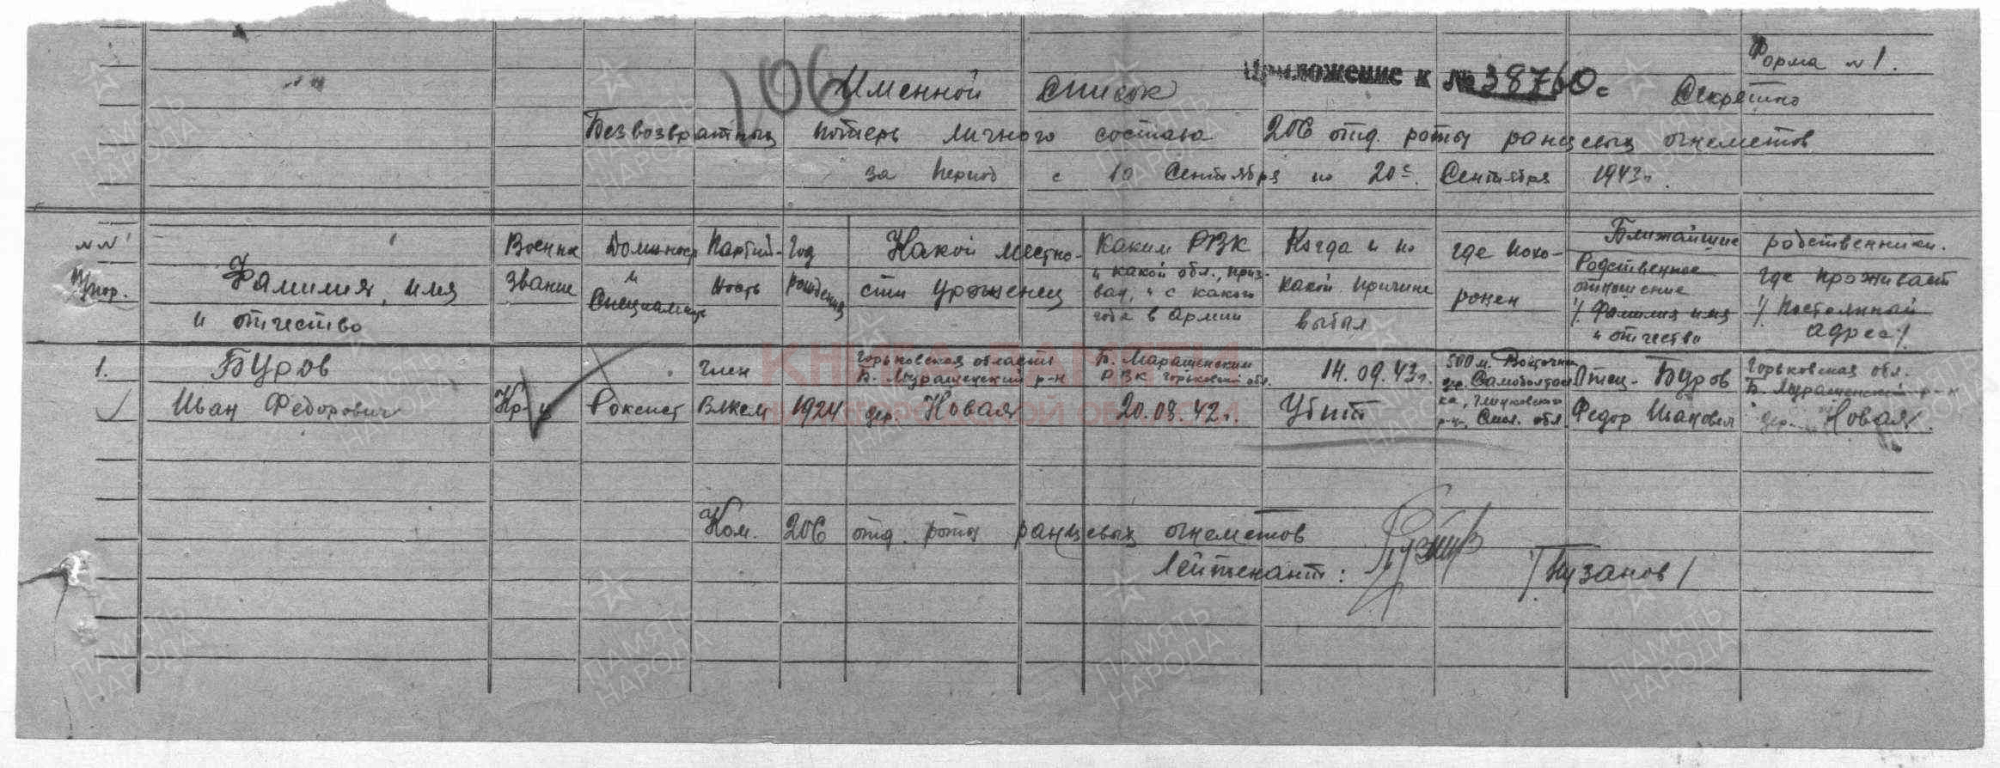 Форма №1.
Приложение к № 38760с
106 Именной список Секретно
Безвозвратных потерь личного состава 206 отд. роты ранцевых огнеметов
за период с 10 Сентября по 20е Сентября 1943г.
№№ п/пор.
Фамилия, имя и отчество
Военное звание
Должность и специальн.
Партий-ность
Год рождения
Какой местно-сти урожинец
Каким РВК и какой обл. приз-ван, и с какого года в Армии
Когда и по какой причине выбыл
где похо-ронен
Ближайшие родственники.
Родственное отношение /Фамилия имя и отчество
где проживает /Постоянный адрес/.
1.
БУров
Иван Федорович
Кр-ц
Роксист
член
Влксм
1924
Горьковская область
Б. Мурашкенский р-н
дер. Новая
Б. Марашкенским
РВК Горьковской обл.
20.08.42г.
14.09.43г.
Убит
500 м. Восточнее
дер.
р-н, Смол. обл.
Отец - Буров
Федор Иванович
Горьковская обл.
Б. Мурашкенский р-н
дер. Новая.
Ком. 206 отд. роты ранцевых огнеметов
Лейтенант: /Пузанов/
КНИГА ПАМЯТИ
НИЖЕГОРОДСКОЙ ОБЛАСТИ
ПАМЯТЬ
НАРОДА